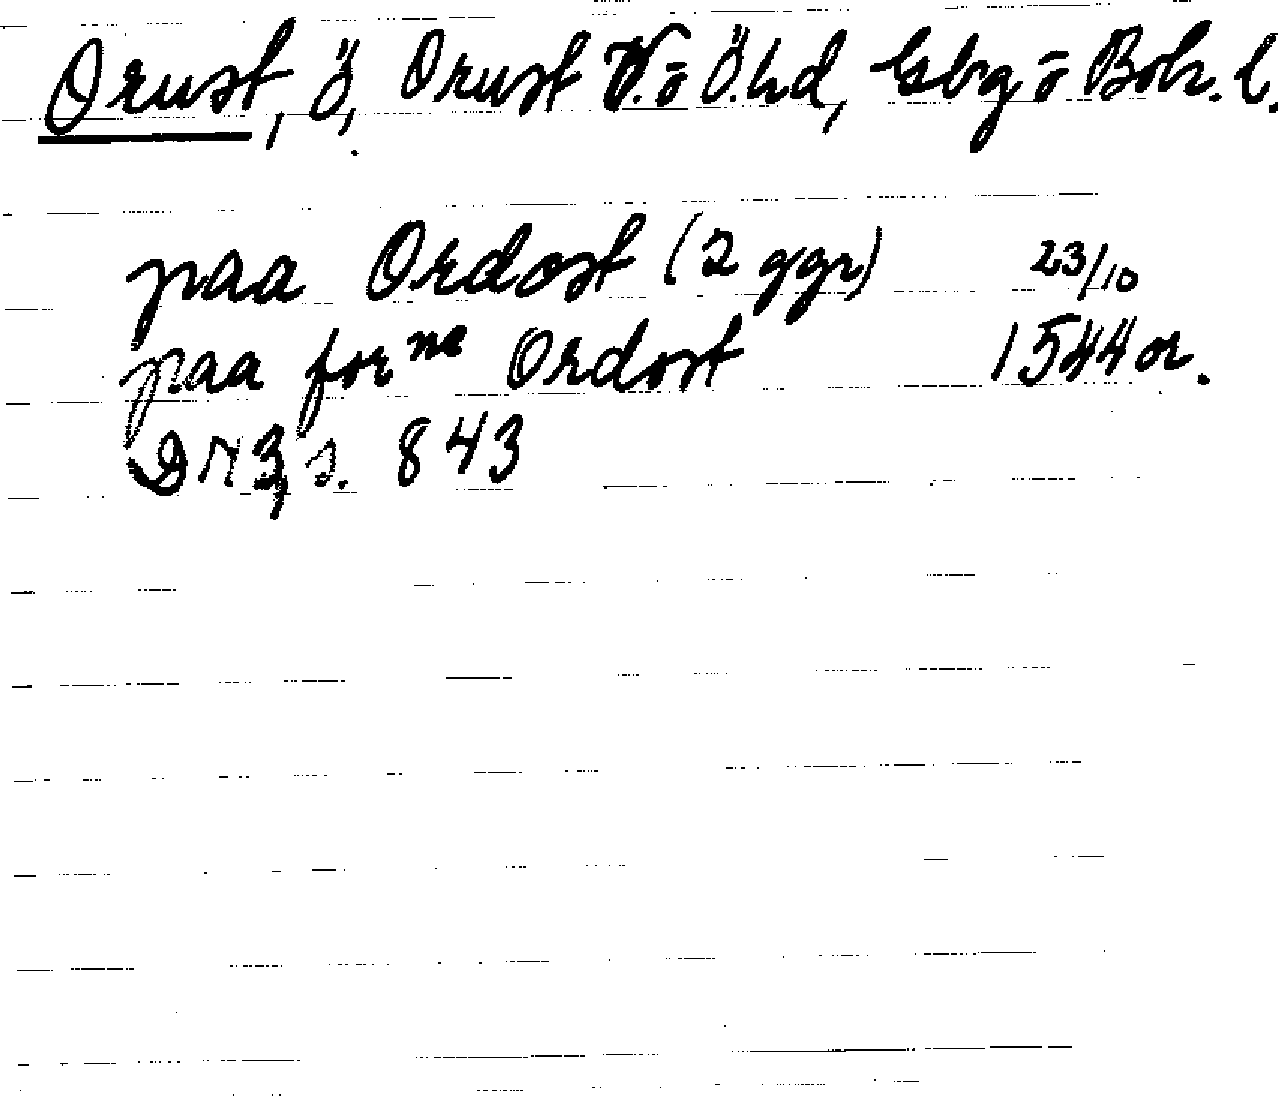 Orust, ö, Orust V. o Ö. hd, Gbrg o Boh. l.
paa Ordost (2 ggr) 23/10
paa for ne Ordost 1544 or.
DN 3, s. 843